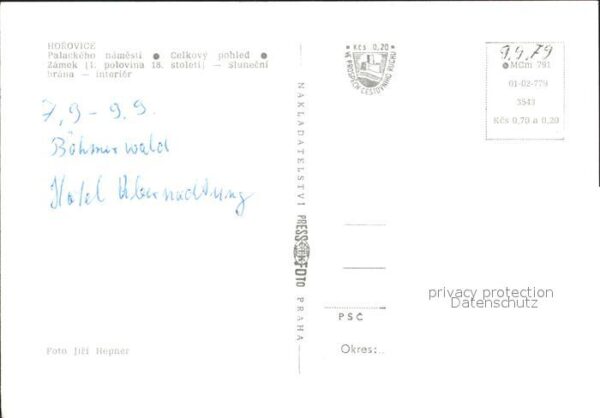 HOŘOVICE
Palackého náměstí ● Celkový pohled ●
Zámek (1. polovina 18. století) — sluneční
brána — interiér
7.9 – 9.9.
Böhmerwald
Hotel Übernachtung
Foto Jiří Hepner
NAKLADATELSTVÍ PRESSFOTO PRAHA
* Kčs 0,20 *
VE PROSPĚCH CESTOVNÍHO RUCHU
9.9.79
MGm 791
01-02-779
3543
Kčs 0,70 a 0,20
privacy protection
Datenschutz
PSČ
Okres: